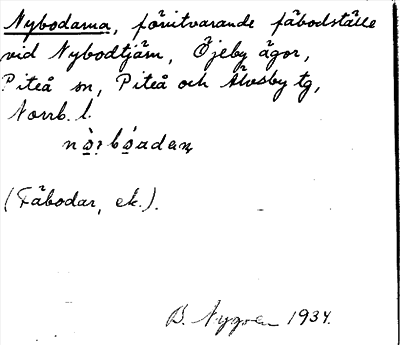 Nybodarna, förutvarande fäbodställe
vid Nybodtjärn, Öjeby ägor,
Piteå sn, Piteå och Älvsby tg,
Norrb. l.
(Fäbodar, ek.).
B. Nygren 1934.